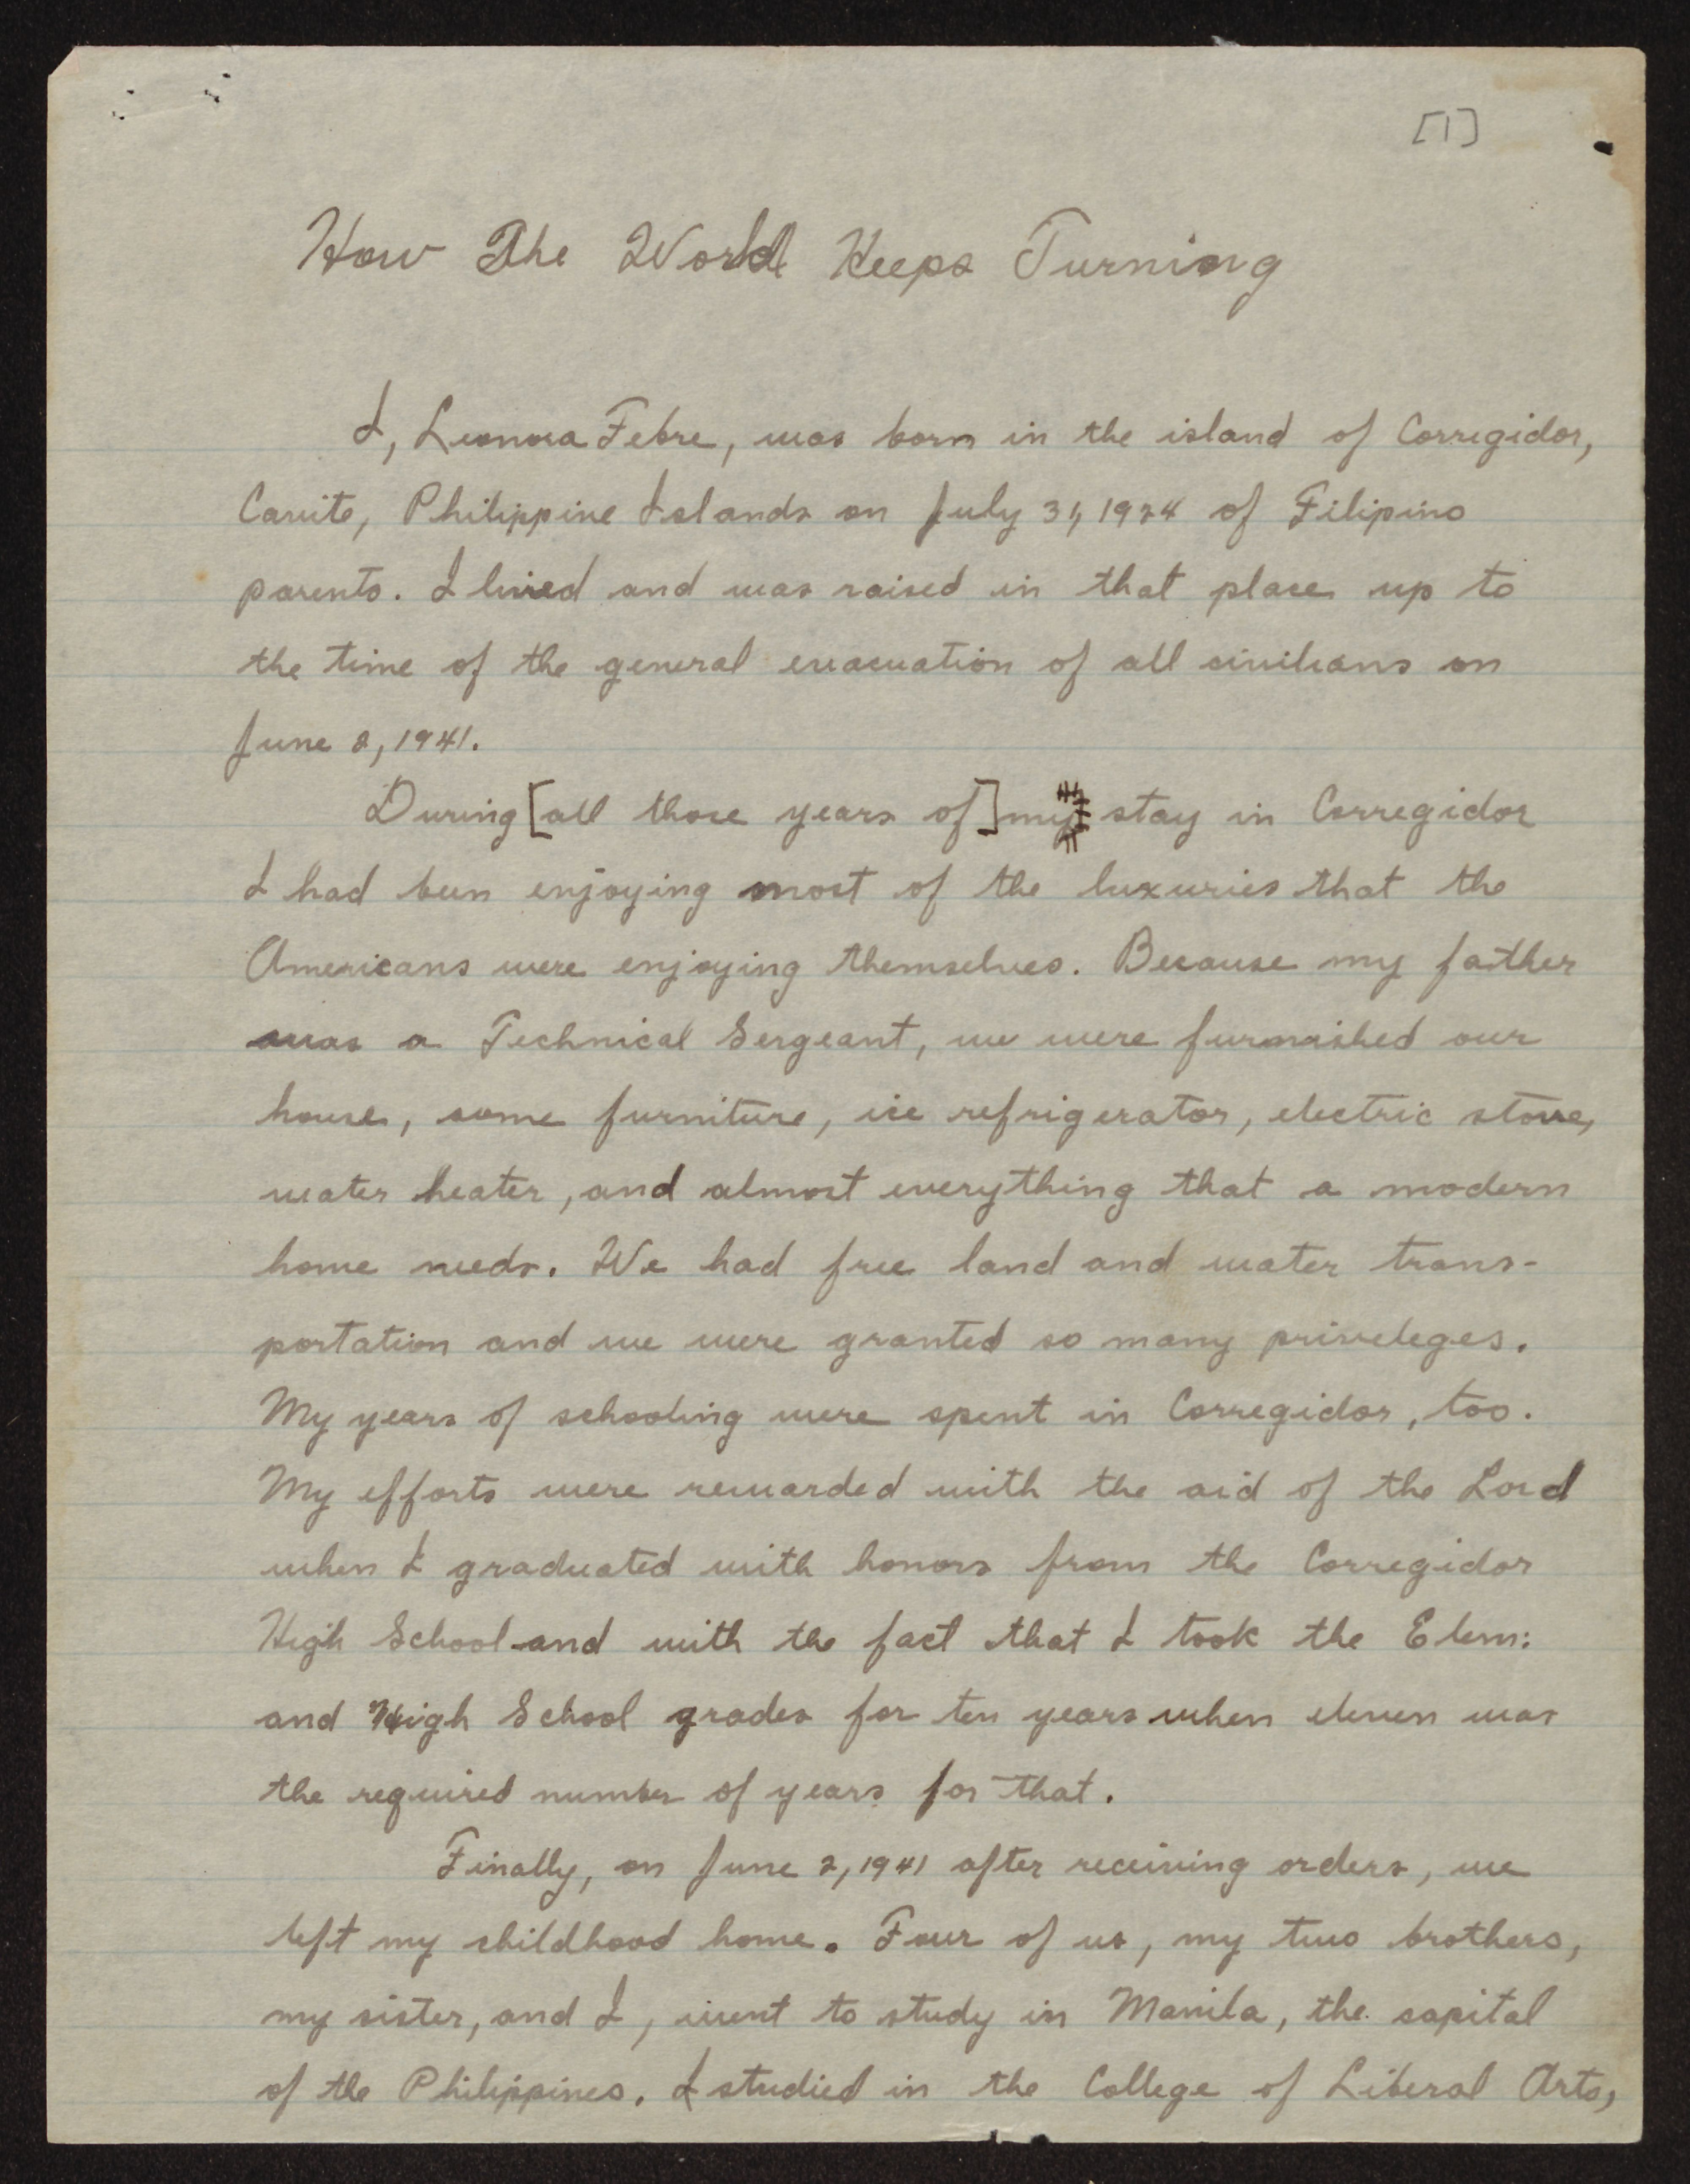 [1]
How The World Keeps Turning
I, Leonora Febre, was born in the island of Corregidor,
Cavite, Philippine Islands on July 31, 1924 of Filipino
parents. I lived and was raised in that place up to
the time of the general evacuation of all civilians on
June 2, 1941.
During [all those years of] my stay in Corregidor
I had been enjoying most of the luxuries that the
Americans were enjoying themselves. Because my father
was a Technical Sergeant, we were furnished our
house, some furniture, ice refrigerator, electric stove,
water heater, and almost everything that a modern
home needs. We had free land and water trans-
portation and we were granted so many priveleges.
My years of schooling were spent in Corregidor, too.
My efforts were rewarded with the aid of the Lord
when I graduated with honors from the Corregidor
High School and with the fact that I took the Elem:
and High School grades for ten years when eleven was
the required number of years for that.
Finally, on June 2, 1941 after receiving orders, we
left my childhood home. Four of us, my two brothers,
my sister, and I, went to study in Manila, the capital
of the Philippines. I studied in the College of Liberal Arts,